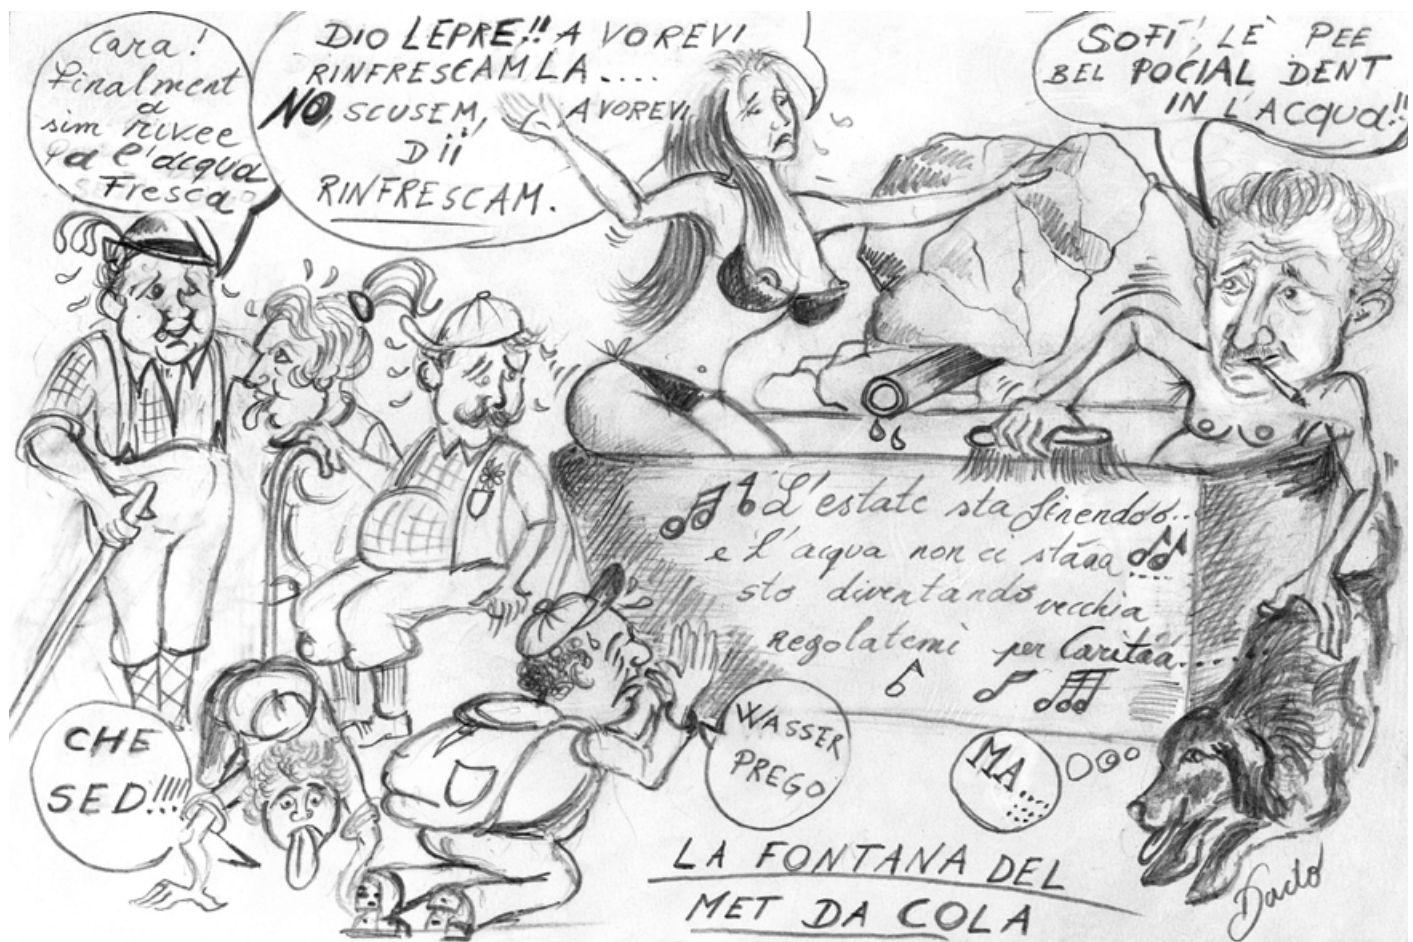 Cara!
finalment
a
sim rivee
da l'acqua
Fresca
DIO LEPRE!! A VOREVI
RINFRESCAMLA....
NO, SCUSEM, A VOREVI
Dii
RINFRESCAM.
SOFI', LÈ PEE
BEL POCIAL DENT
IN L'ACQUA!!
L'estate sta finendoo..
e L'acqua non ci stàaa....
sto diventando vecchia
regolatemi per Caritàa......
CHE
SED!!!!!
WASSER
PREGO
MA....
LA FONTANA DEL
MET DA COLA
Dado